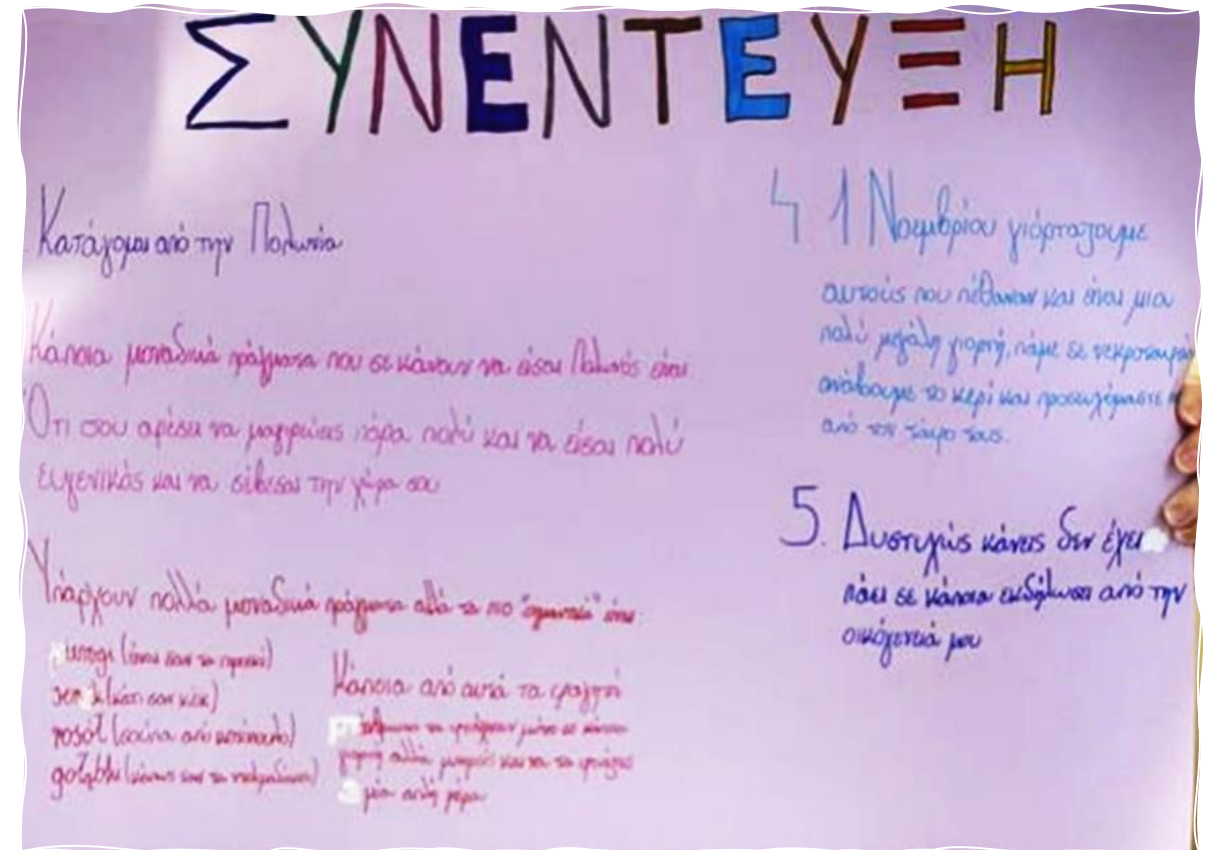 ΣΥΝΕΝΤΕΥΞΗ
Κατάγομαι από την Πολωνία
Κάποια μοναδικά πράγματα που σε κάνουν να είσαι Πολωνός είναι
Ότι σου αρέσει να μαγειρεύεις πάρα πολύ και να είσαι πολύ
ευγενικός και να σέβεσαι την χώρα σου
Υπάρχουν πολλά μοναδικά πράγματα αλλά τα πιο "σημαντικά" είναι
(είναι σαν τα
(κάτι σαν κέικ)
rosół (σούπα από κοτόπουλο)
gołąbki
Κάποια από αυτά τα φαγητά
τα μόνο σε κάποια
γιορτή αλλά μπορείς και να τα φτιάξεις
μία απλή μέρα
4. 1 Νοεμβρίου γιόρταζουμε
αυτούς που πέθαναν και είναι μια
πολύ μεγάλη γιορτή, πάμε σε
ανάβουμε το κερί και προσευχόμαστε
από τον τάφο τους.
5. Δυστυχώς κάνεις δεν έχει
πάει σε κάποια εκδήλωση από την
οικόγενειά μου